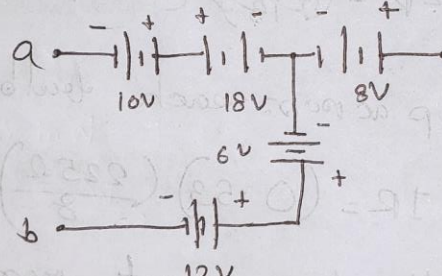 - + + - - +
a
10V 18V 8V
6V -
+
- +
b
12V